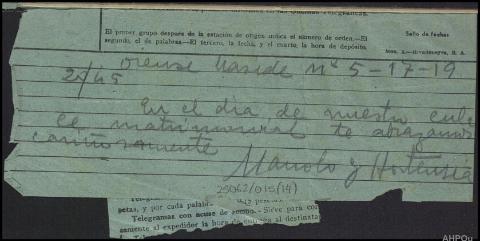 El primer grupo después de la estación de origen indica el número de orden.—El
segundo, el de palabras.—El tercero, la fecha, y el cuarto, la hora de depósito.
Sello de fechas
orense Maside nº 5-17-19
20/45
En el dia de nuestro enla
ce matrimonial te abrazamos
cariñosamente
Manolo y Hortensia
25062/015(14)
petas, y por cada
Telegramas con acuse de recibo.—Sirve para con
samente al expedidor la hora de entrega al destinata
AHPOu